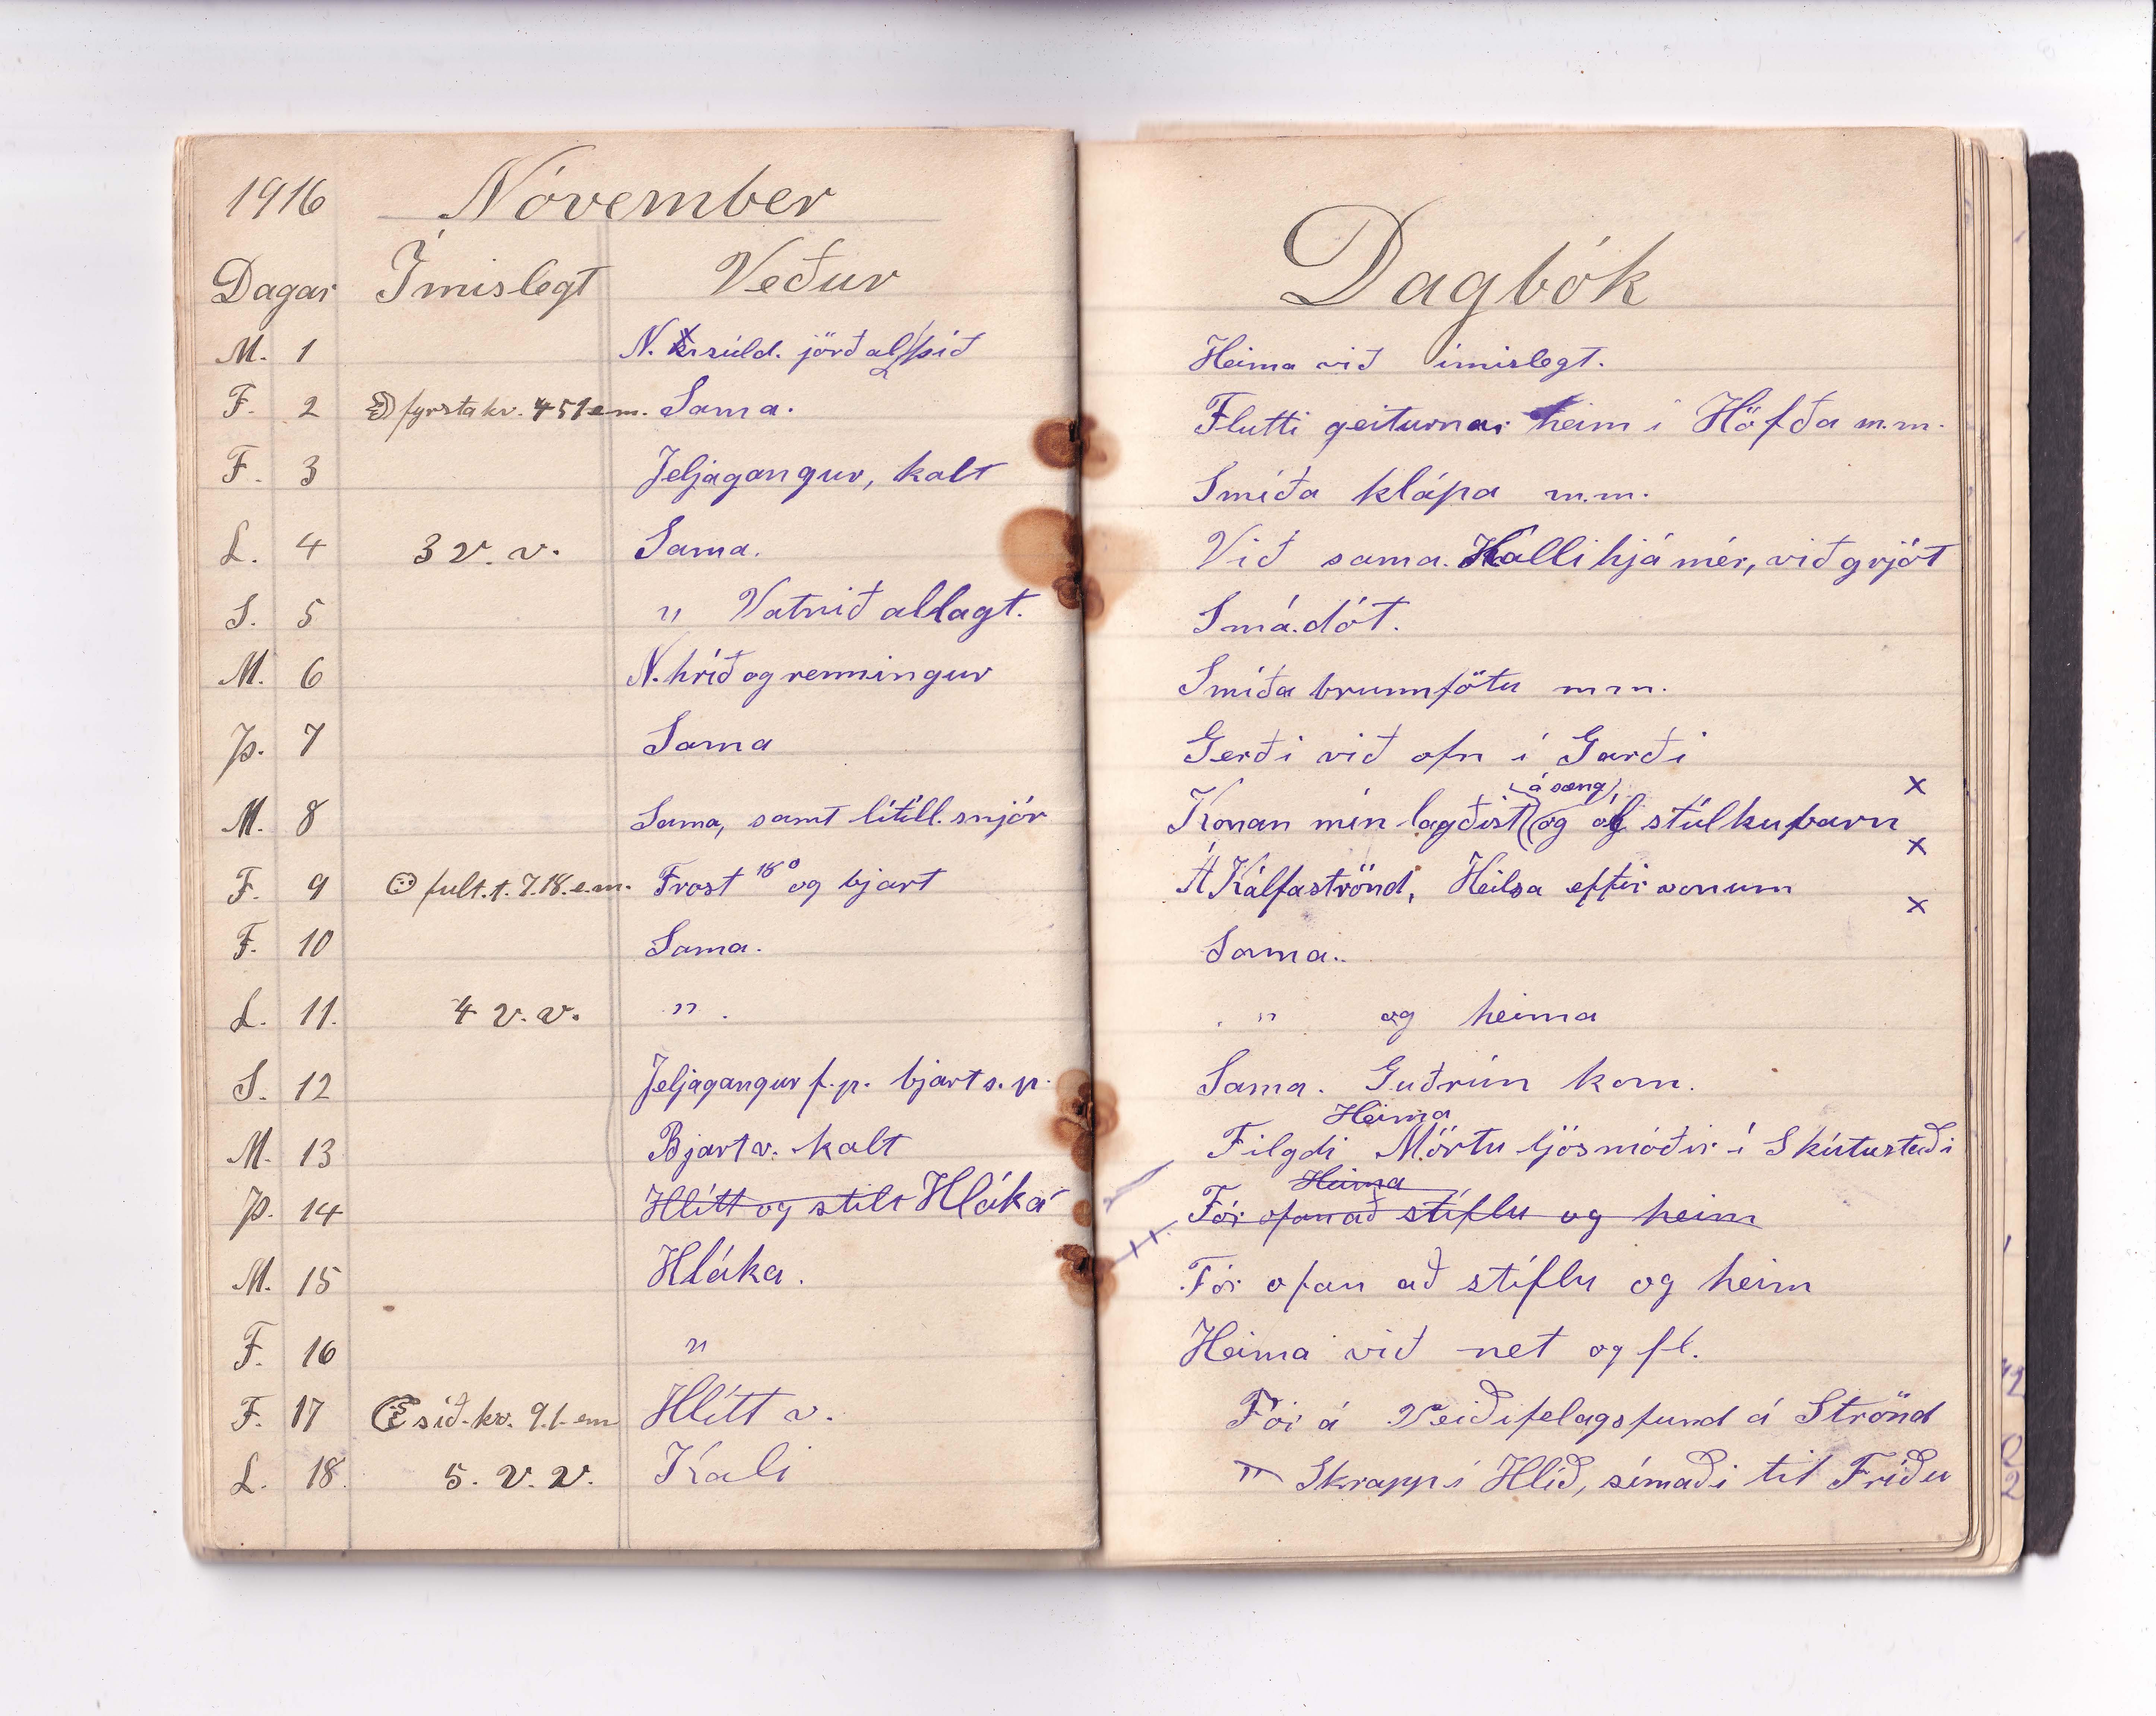 1916 Nóvember
Dagar Ímislegt Veður
M. 1 N. súld. jörð alþíð
F. 2 fyrsta kv. 4 51 e m. Sama.
F. 3 Jeljagangur, kalt
L. 4 3 v. v. Sama.
S. 5 " Vatnið allagt.
M. 6 N. hríð og renningur
Þ. 7 Sama
M. 8 Sama, samt lítill. snjór
F. 9 fult. t. 7.18. e m. Frost 18° og bjart
F. 10 Sama.
L. 11. 4 v. v. " .
S. 12 Jeljagangur f. p. bjart s. p.
M. 13 Bjart v. kalt
Þ. 14 Hlítt og stilt Hláka
M. 15 Hláka.
F. 16 "
F. 17 síð. kv. 9.1. em Hlítt v.
L. 18. 5. v. v. Kali
Dagbók
Heima við ímislegt.
Flutti geiturnar heim í Höfða m.m.
Smíða klápa m.m.
Við sama. Halli hjá mér, við grjót
Smá.dót.
Smíða brunnfötu m m.
Gerði við ofn í Garði
á sæng x
Konan mín lagðist og ól stúlkubarn
x
Á Kálfaströnd, Heilsa eftir vonum
x
Sama..
" og heima
Sama. Guðrún kom.
Heima
Filgdi Mörtu ljósmóðir í Skútustaði
Heima
Fór ofan að stíflu og heim
Fór ofan að stíflu og heim
Heima við net og fl.
Fór á Veiðifelagsfund á Strönd
" Skrapp í Hlíð, símaði til Fríðu